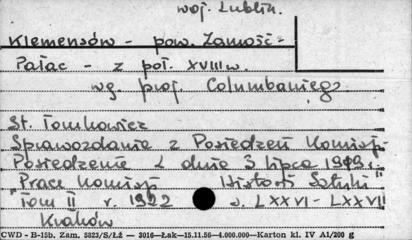 woj. Lublin.
Klemensów - pow. Zamość -
Pałac - z poł. XVIII w.
wg. proj. Columbaniego
St. Tomkowicz
Sprawozdanie z Posiedzeń Komisji
Posiedzenie z dnia 3 lipca 1919 r.
"Prace Komisji Historii Sztuki"
Tom II r. 1922 s. LXXVI - LXXVII
Kraków
CWD - B-15b. Zam. 5823/S/ŁŻ — 3016—Łak—15.11.56—4.000.000—Karton kl. IV A1/200 g